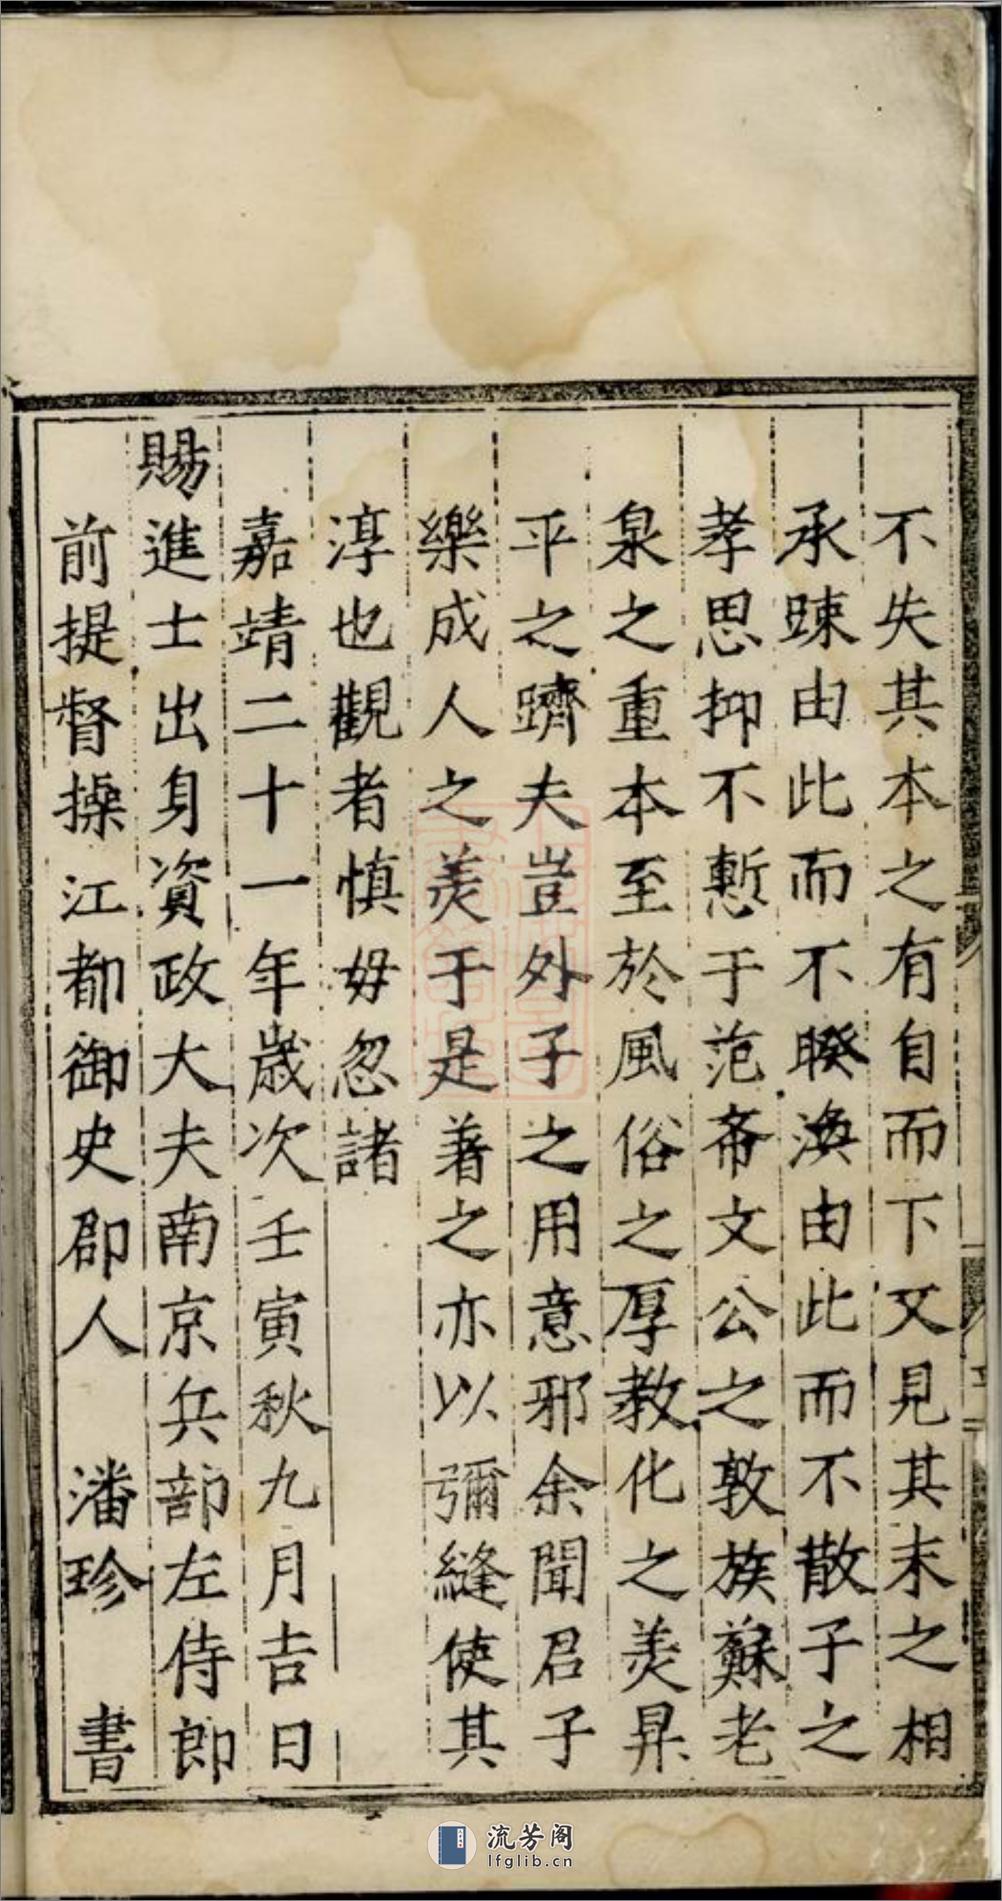 不失其本之有自而下又見其末之相
承踈由此而不暌渙由此而不散子之
孝思抑不慙于范希文公之敦族蘇老
泉之重本至於風俗之厚教化之美昇
平之躋夫豈外子之用意邪余聞君子
樂成人之美于是著之亦以彌縫使其
淳也觀者慎毋忽諸
嘉靖二十一年歲次壬寅秋九月吉日
賜進士出身資政大夫南京兵部左侍郎
前提督操江都御史郡人 潘珍 書
流芳阁
lfglib.cn